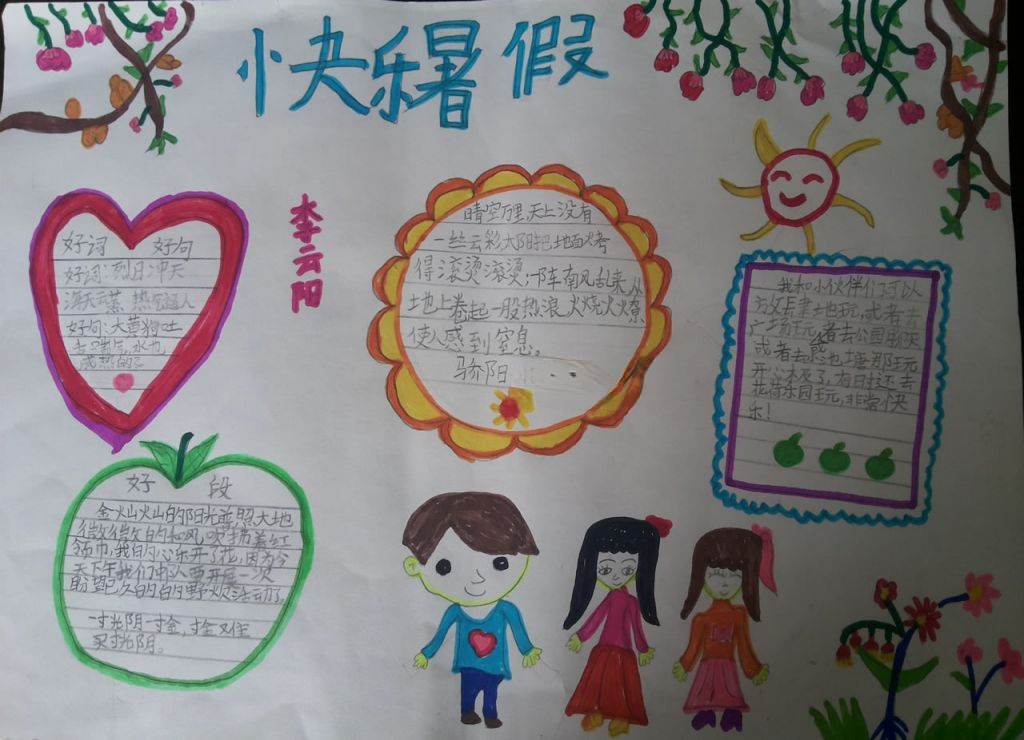 快乐暑假
李云阳
好词 好句
好词:烈日冲天
热气逼人
好句:大黄狗吐
成热的。
晴空万里,天上没有
一丝云彩,太阳把地面烤
得滚烫滚烫;一阵南风乱来,从
地上卷起一股热浪,火烧火燎
使人感到窒息。
骄阳
我和小伙伴们可以
广场玩,或者去公园聊天
或者去池塘那玩
开心极了,有时还去
花荷乐园玩,非常快
乐!
好 段
金灿灿的阳光普照大地
微微的和风吹拂着红
领巾,我的心乐开了花,因为今
天下午我们中队要开展一次
盼望已久的的野炊活动了。
一寸光阴一寸金,寸金难
买寸光阴。